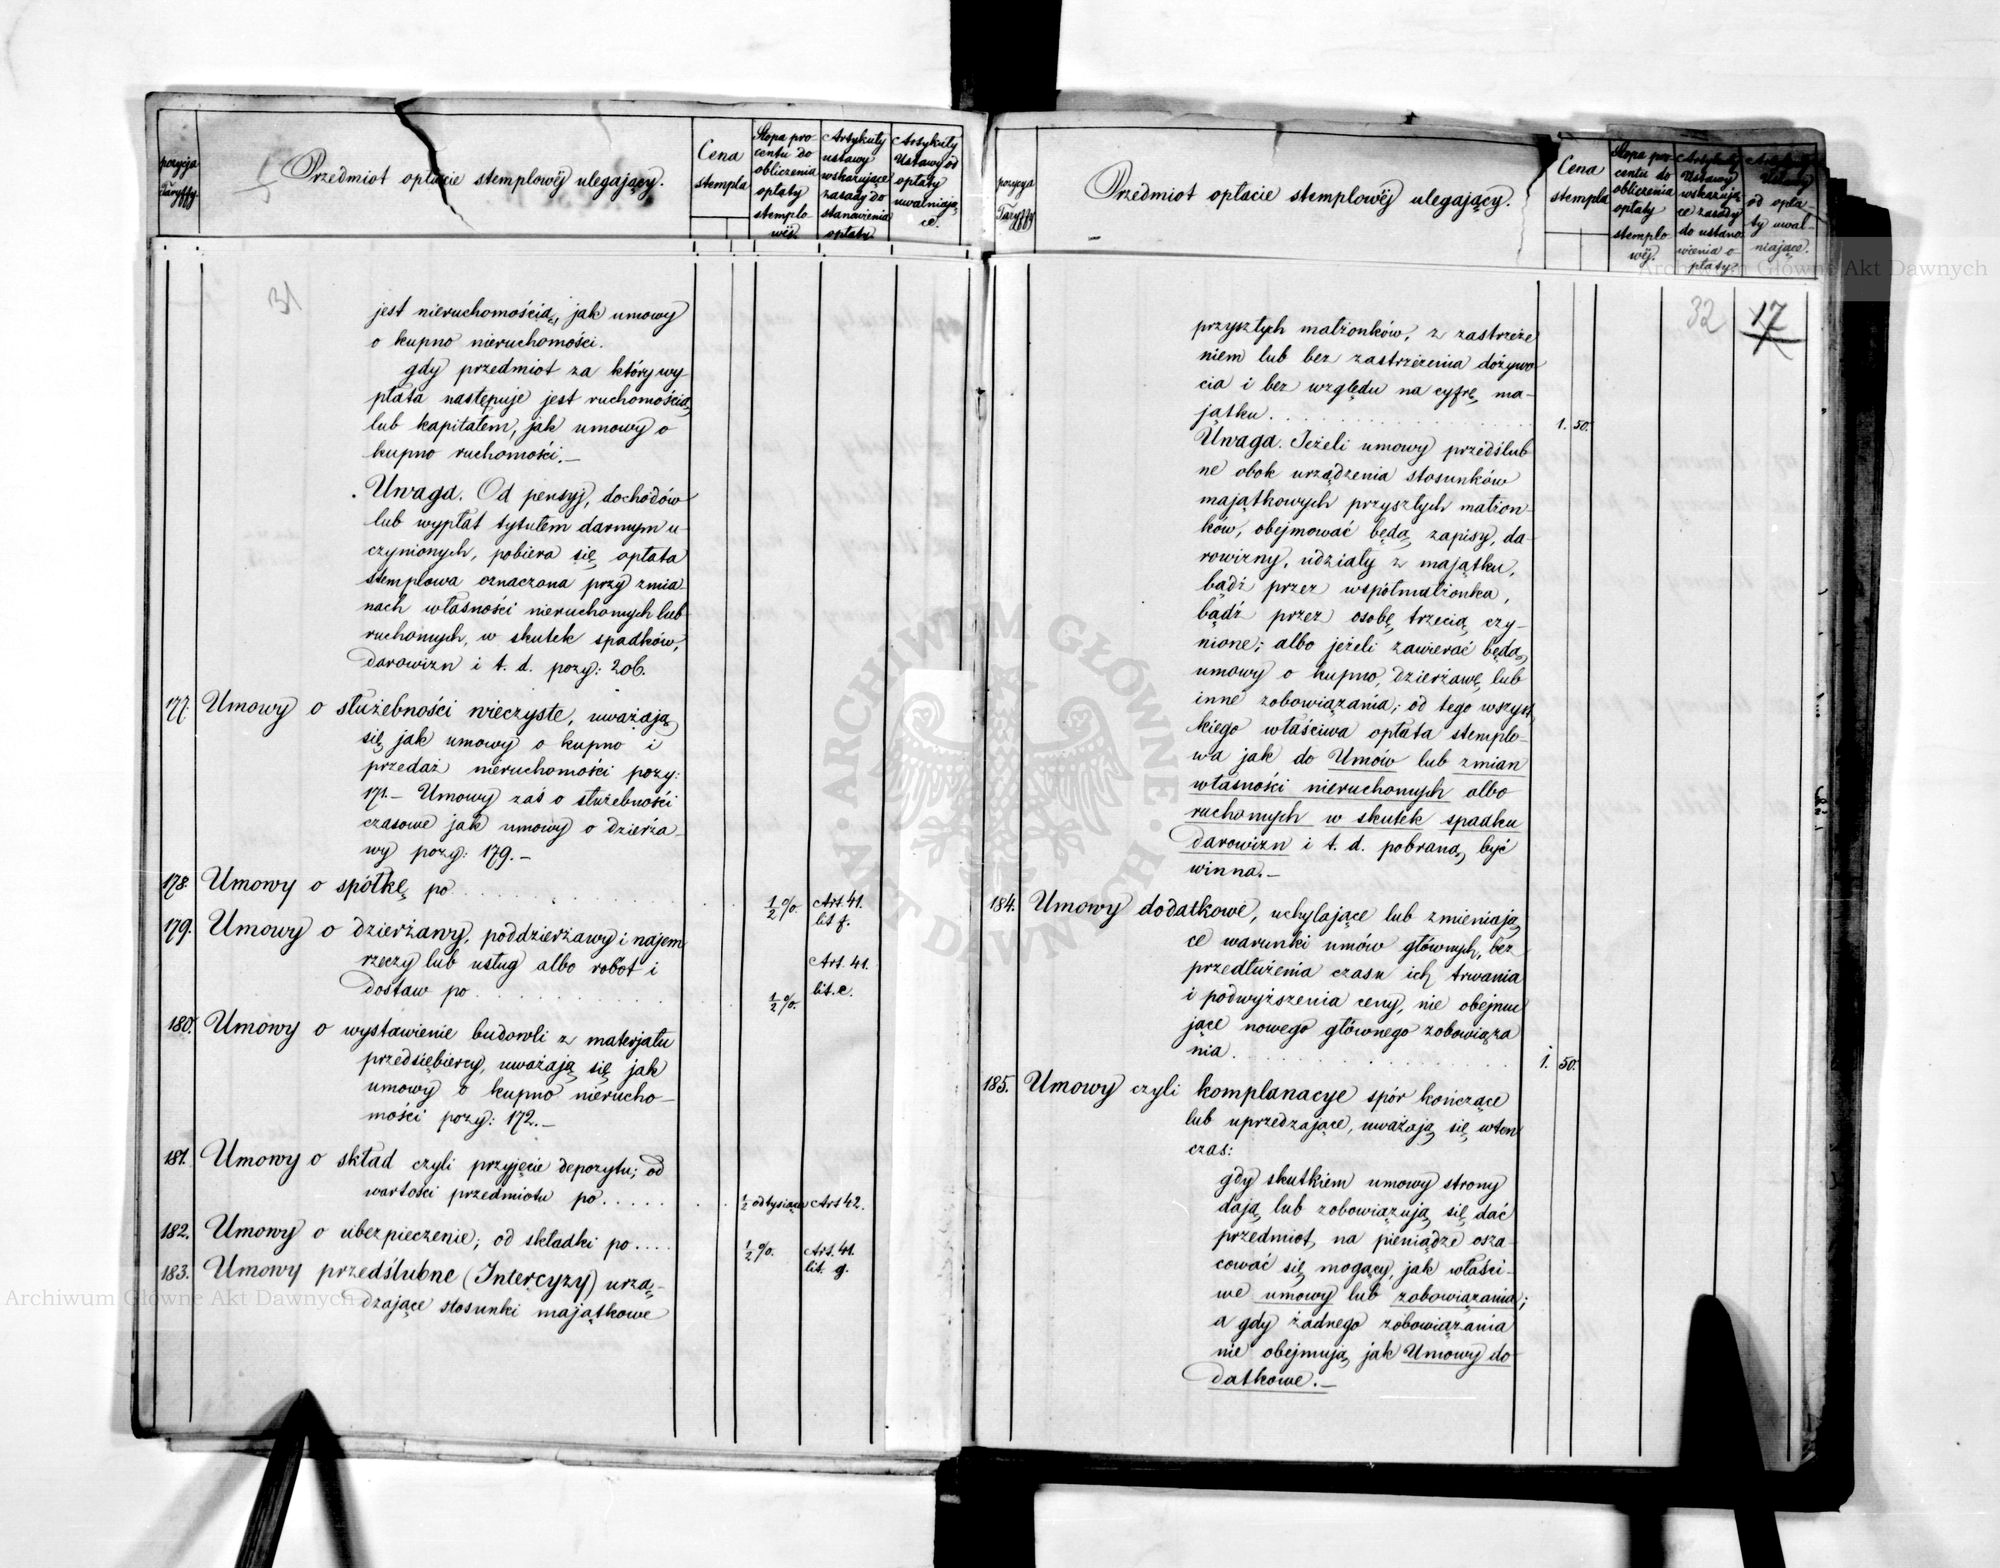 pozycja Taryffy
Przedmiot opłacie stemplowéj ulegający.
Cena stempla
Stopa pro-
centu do
obliczenia
opłaty
stemplo-
wéj.
Artykuły
ustawy
wskazujące
zasady do
stanowienia
opłaty.
Artykuły
Ustawy od
opłaty
uwalniają-
ce.
31
jest nieruchomością, jak umowy
o kupno nieruchomości.
gdy przedmiot za który wy
płata następuje jest ruchomością
lub kapitałem, jak umowy o
kupno ruchomości.—
Uwaga. Od pensyj, dochodów
lub wypłat tytułem darmym u-
czynionych, pobiera się opłata
stemplowa oznaczona przy zmia
nach własności nieruchomych lub
ruchomych, w skutek spadków,
darowizn i t. d. pozy: 206.
177. Umowy o służebności wieczyste, uważają
się jak umowy o kupno i
przedaż nieruchomości pozy:
171.— Umowy zaś o służebności
czasowe jak umowy o dzierża-
wy pozy: 179.—
178. Umowy o spółkę po . . . ½%. Art. 41.
lit. f.
179. Umowy o dzierżawy, poddzierżawy i najem
rzeczy lub usług albo robot i Art. 41.
dostaw po . . . ½%. lit. e.
180. Umowy o wystawienie budowli z materjału
przedsiębiercy, uważają się jak
umowy o kupno nierucho-
mości pozy: 172.—
181. Umowy o skład czyli przyjęcie depozytu; od
wartości przedmiotu po . . . ½ od tysiąca Art 42.
182. Umowy o ubezpieczenie; od składki po . . . . ½%. Art. 41.
lit. g.
183. Umowy przedślubne (Intercyzy) urzą-
dzające stosunki majątkowe
pozycya Taryffy
Przedmiot opłacie stemplowéj ulegający.
Cena stempla
Stopa pro-
centu do
obliczenia
opłaty
stemplo-
wéj.
Artykuły
Ustawy
wskazują
ce zasady
do ustano
wienia o-
płaty.
Artykuły
Ustawy
od opła-
ty uwal-
niające.
32 17
przyszłych małżonków, z zastrzeże
niem lub bez zastrzeżenia dożywo
cia i bez względu na cyfrę ma-
jątku . . . 1. 50.
Uwaga. Jeżeli umowy przedślub
ne obok urządzenia stosunków
majątkowych przyszłych małżon-
ków, obejmować będą zapisy, da-
rowizny, udziały z majątku,
bądź przez współmałżonka,
bądź przez osobę trzecią czy-
nione; albo jeżeli zawierać będą
umowy o kupno, dzierżawę lub
inne zobowiązania; od tego wszyst
kiego właściwa opłata stemplo-
wa jak do Umów lub zmian
własności nieruchomych albo
ruchomych w skutek spadku
darowizn i t. d. pobraną być
winna.—
184. Umowy dodatkowe, uchylające lub zmieniają
ce warunki umów głównych, bez
przedłużenia czasu ich trwania
i podwyższenia ceny, nie obejmu
jące nowego głównego zobowiąza
nia . . . 1. 50.
185. Umowy czyli komplanacye spór kończące
lub uprzedzające, uważają się wten
czas:
gdy skutkiem umowy strony
dają lub zobowiązują się dać
przedmiot, na pieniądze osza-
cować się mogący, jak właści-
we umowy lub zobowiązania;
a gdy żadnego zobowiązania
nie obejmują, jak Umowy do
datkowe.—
ARCHIWUM GŁÓWNE AKT DAWNYCH
Archiwum Główne Akt Dawnych
Archiwum Główne Akt Dawnych